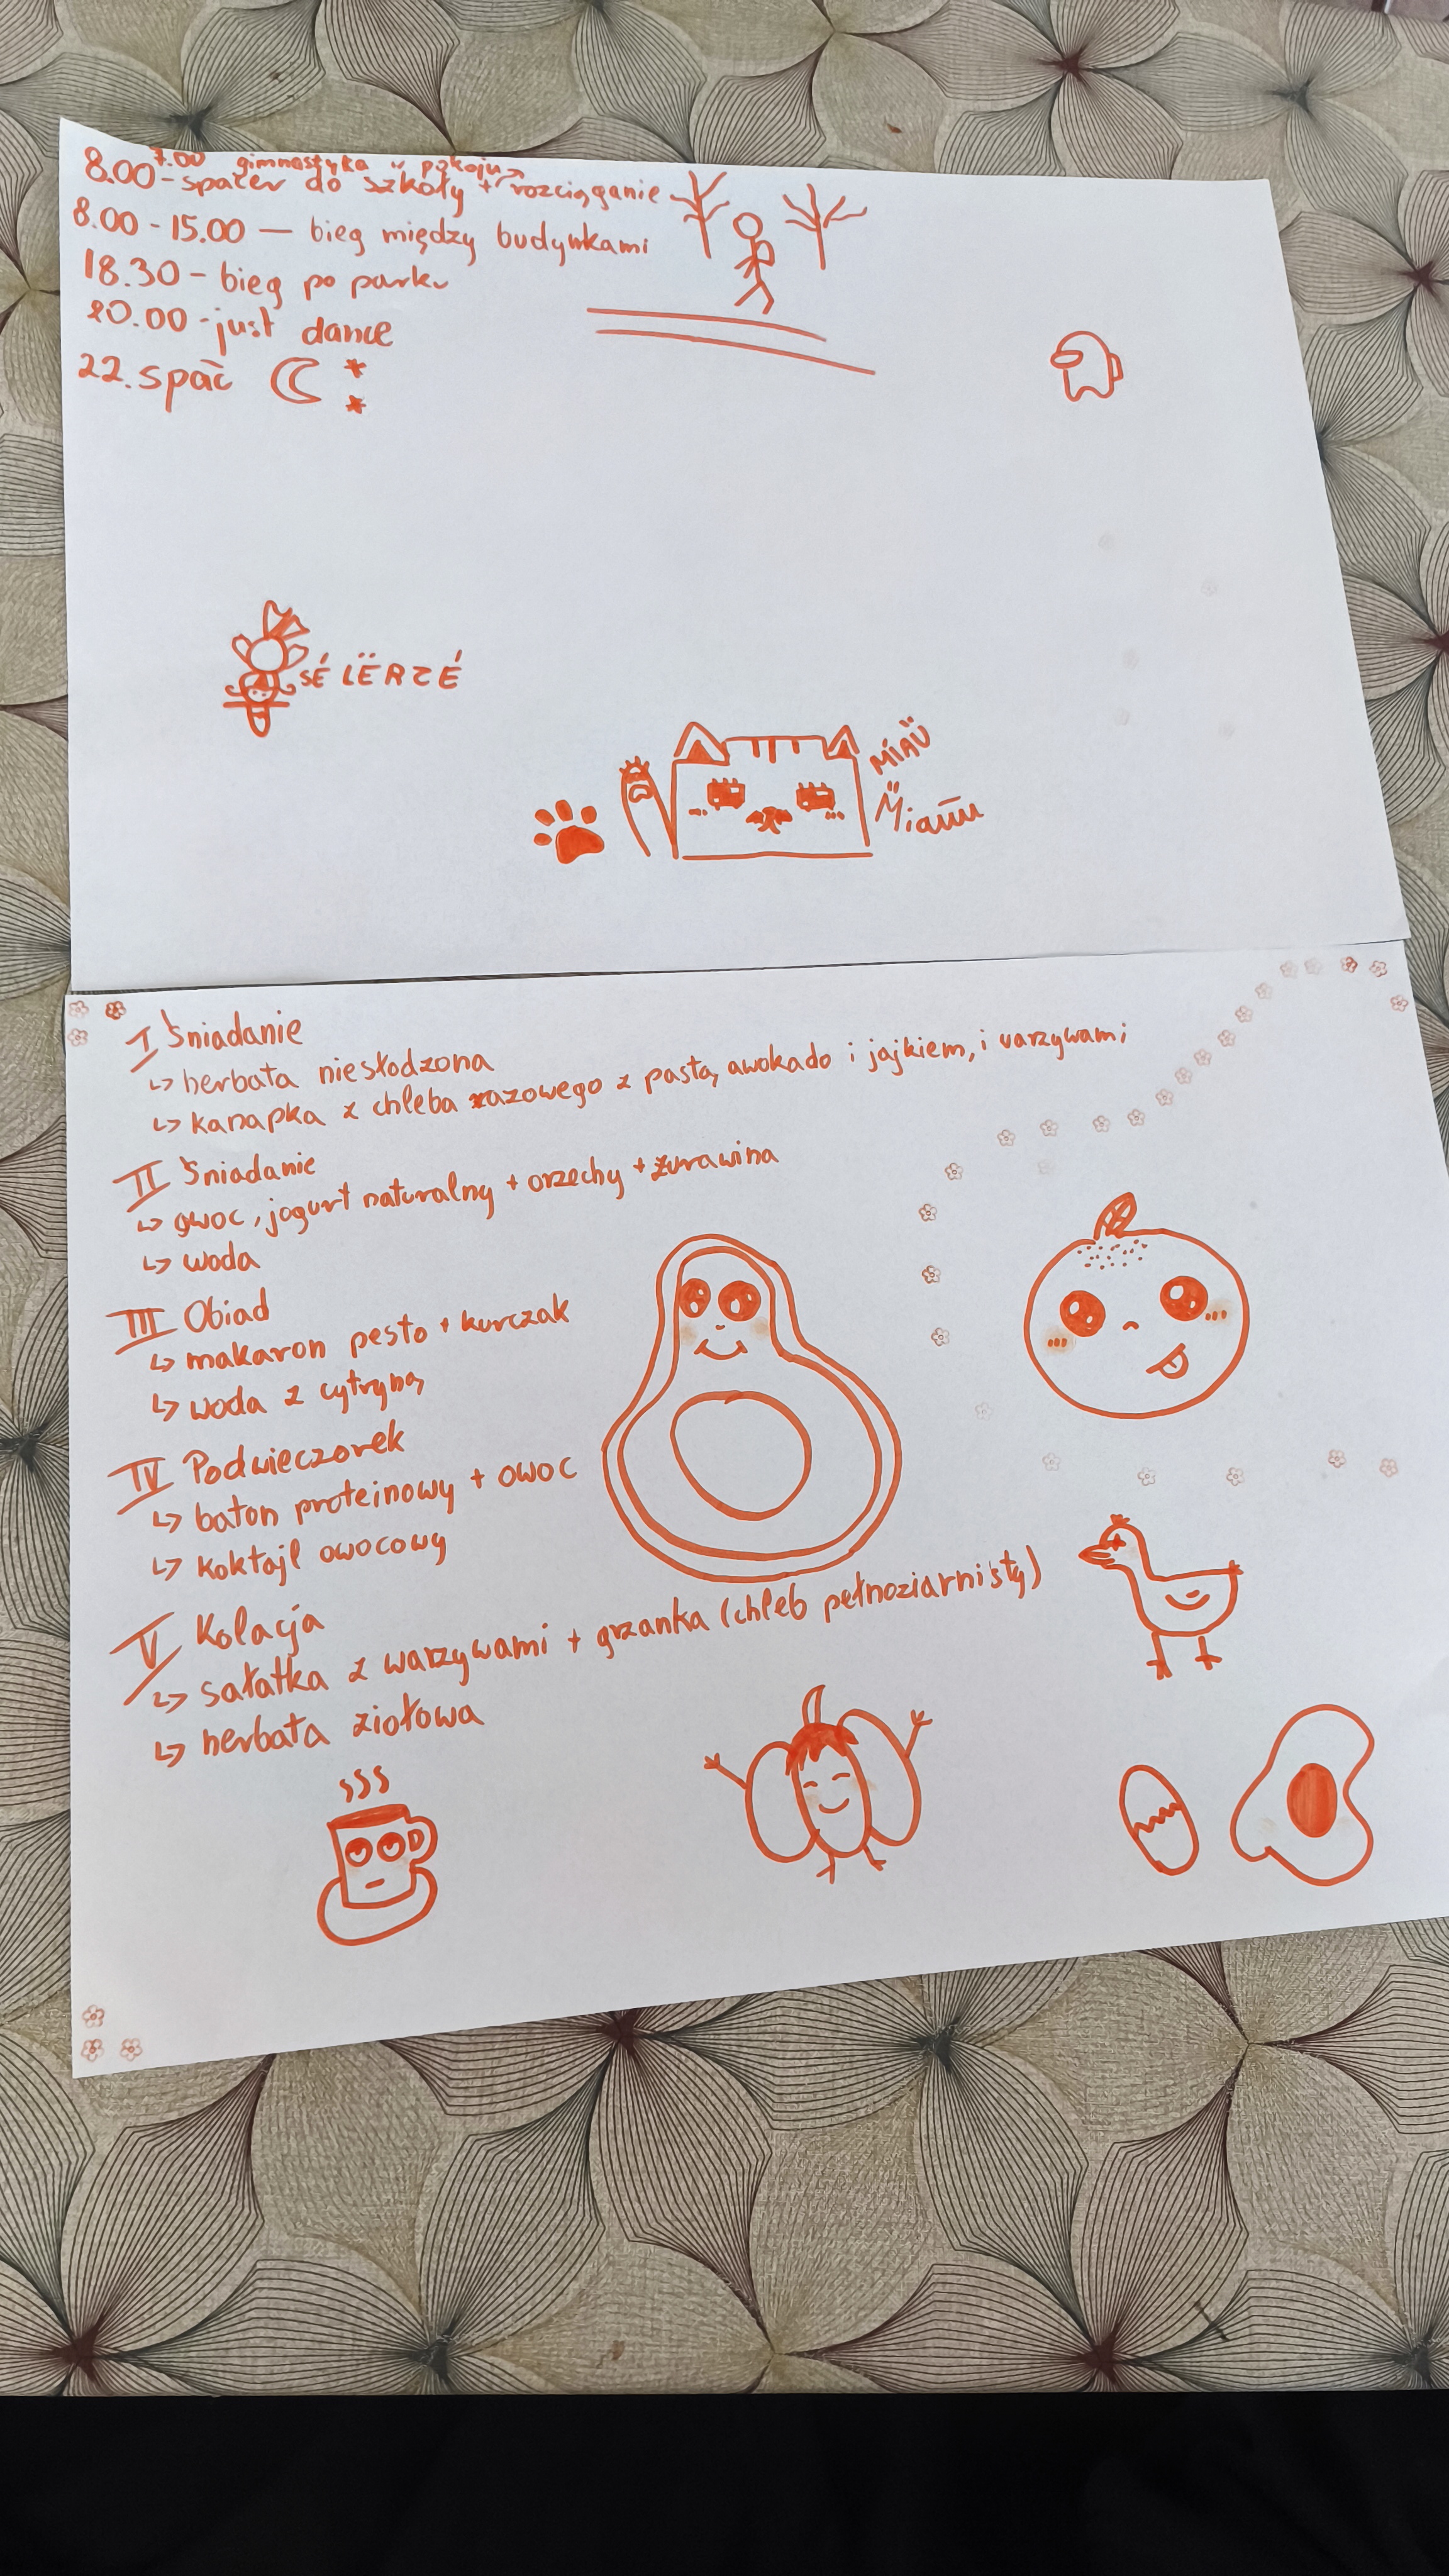 7.00 gimnastyka w pokoju
8.00 - spacer do szkoły + rozciąganie
8.00 - 15.00 — bieg między budynkami
18.30 - bieg po parku
20.00 - just dance
22. spać
SÉLËRZÉ
MIAÜ
Miaüu
I Śniadanie
↳ herbata niesłodzona
↳ kanapka z chleba razowego z pastą awokado i jajkiem, i warzywami
II Śniadanie
↳ owoc, jogurt naturalny + orzechy + żurawina
↳ woda
III Obiad
↳ makaron pesto + kurczak
↳ woda z cytryną
IV Podwieczorek
↳ baton proteinowy + owoc
↳ koktajl owocowy
V Kolacja
↳ sałatka z warzywami + grzanka (chleb pełnoziarnisty)
↳ herbata ziołowa